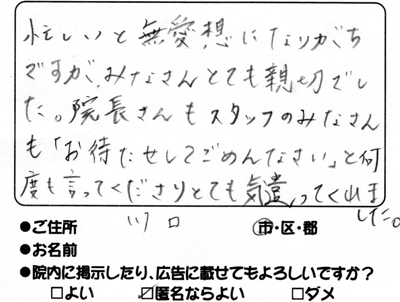 忙しいと無愛想になりがち
ですが、みなさんとても親切でし
た。院長さんもスタッフのみなさん
も「お待たせしてごめんなさい」と何
度も言ってくださりとても気遣ってくれま
した。
●ご住所 川口 市・区・郡
●お名前
●院内に掲示したり、広告に載せてもよろしいですか?
□よい ☑匿名ならよい □ダメ